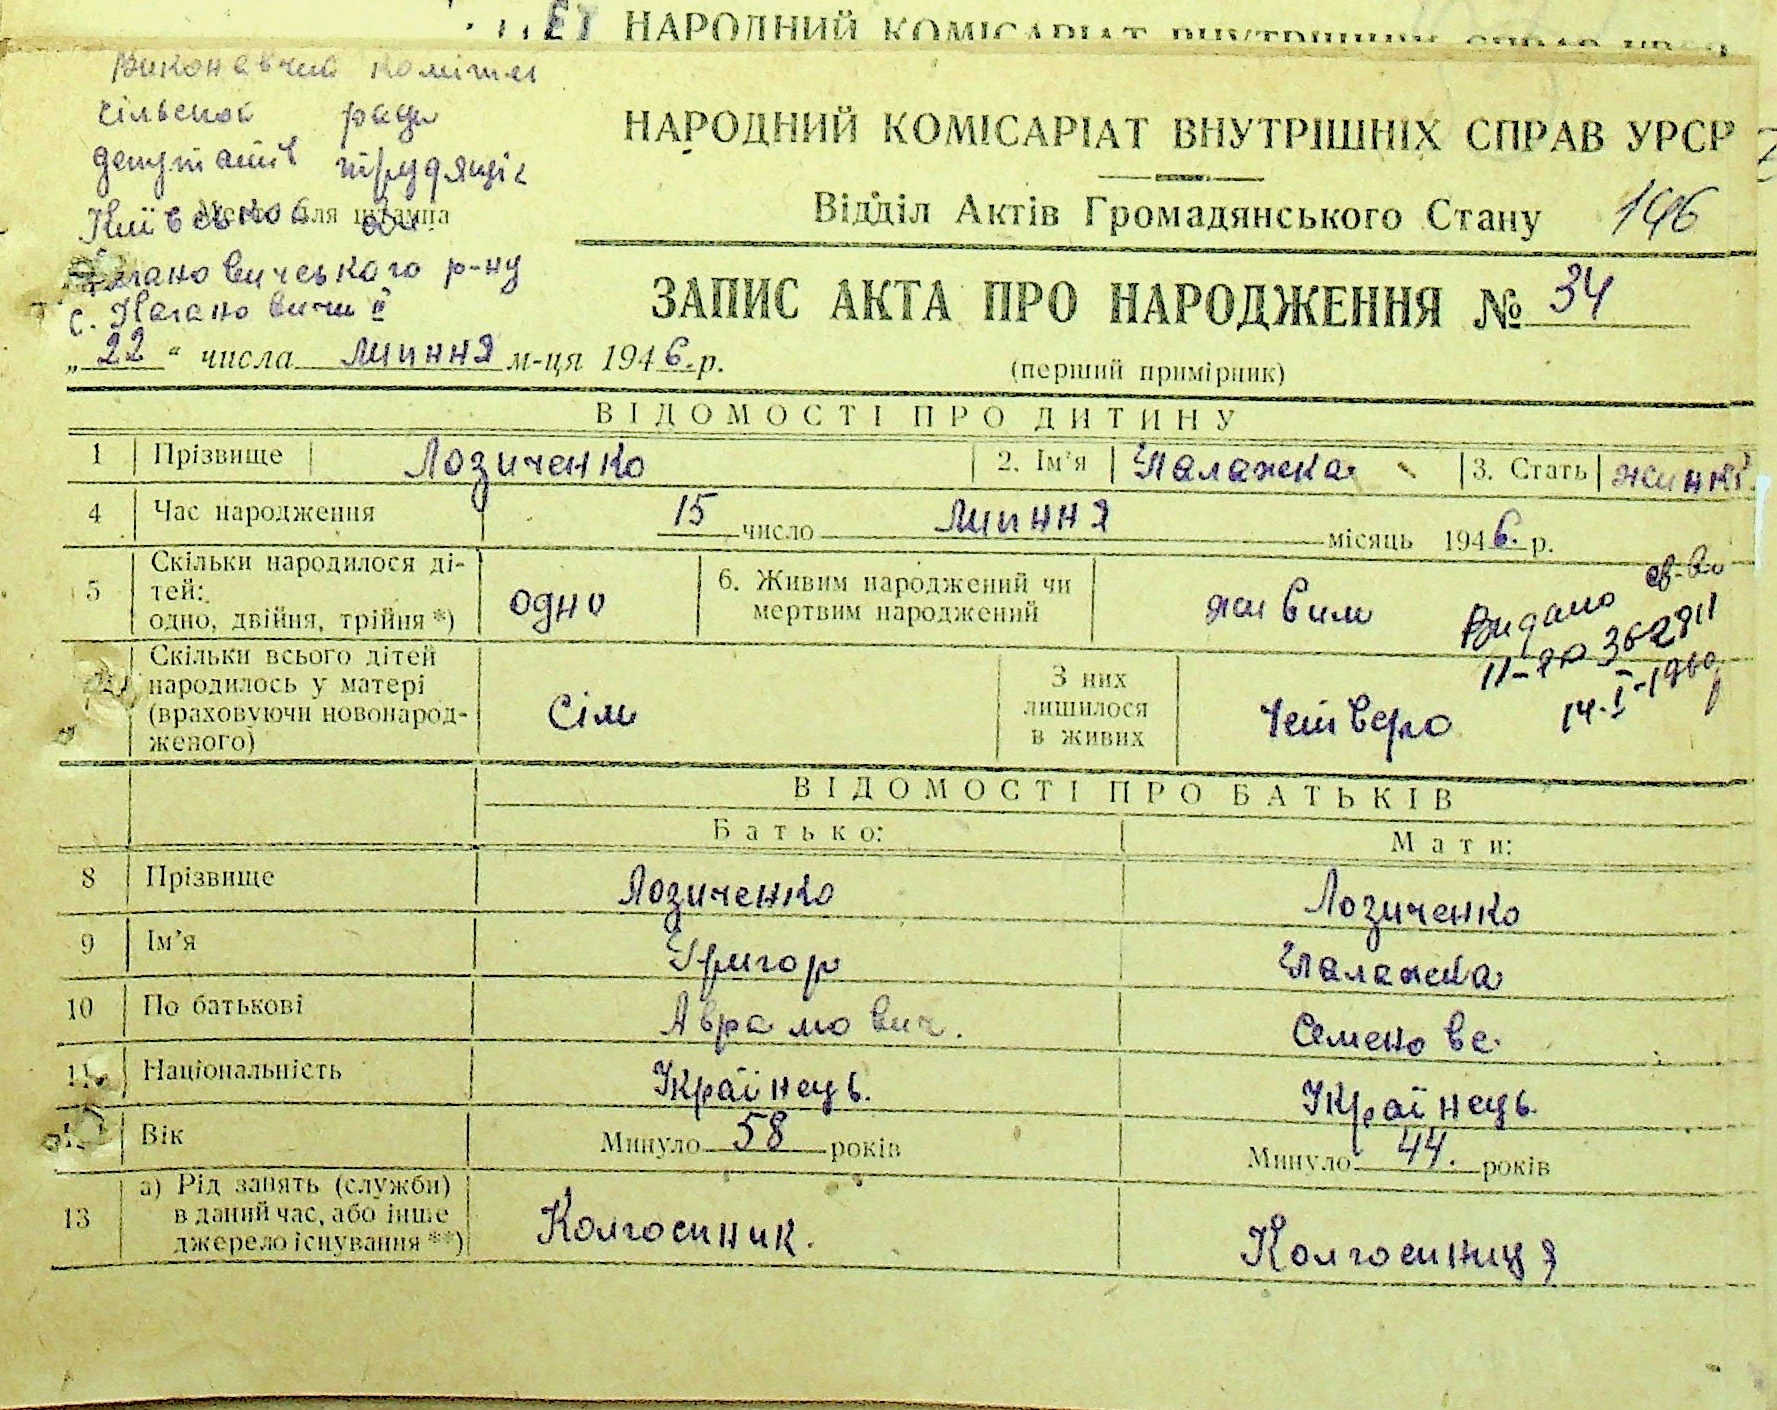 НАРОДНИЙ КОМІСАРІАТ ВНУТРІШНІХ СПРАВ УРСР
Виконавчий комітет
сільської ради
депутатів трудящіх
Місце для штампа
Київської обл.
Кагановичського р-ну
с. Кагановичи ІІ
НАРОДНИЙ КОМІСАРІАТ ВНУТРІШНІХ СПРАВ УРСР
Відділ Актів Громадянського Стану 196
ЗАПИС АКТА ПРО НАРОДЖЕННЯ № 34
„22“ числа липня м-ця 1946.р.
(перший примірник)
ВІДОМОСТІ ПРО ДИТИНУ
1 Прізвище Лозиченко 2. Ім'я Палажка 3. Стать жинк.
4 Час народження 15 число Липня місяць 1946. р.
5 Скільки народилося ді-
тей:
одно, двійня, трійня *) одно 6. Живим народжений чи
мертвим народжений живим
Видано св-во
ІІ-ЯР 362811
14.I-1960
Скільки всього дітей
народилось у матері
(враховуючи новонарод-
женого) Сім З них
лишилося
в живих Четверо
ВІДОМОСТІ ПРО БАТЬКІВ
Батько: Мати:
8 Прізвище Лозиченко Лозиченко
9 Ім'я Григор Палажка
10 По батькові Аврамович. Семенове.
11 Національність Українець. Українець.
Вік Минуло 58 років Минуло 44. років
13 а) Рід занять (служби)
в даний час, або інше
джерело існування **) Колгоспник. Колгоспниця